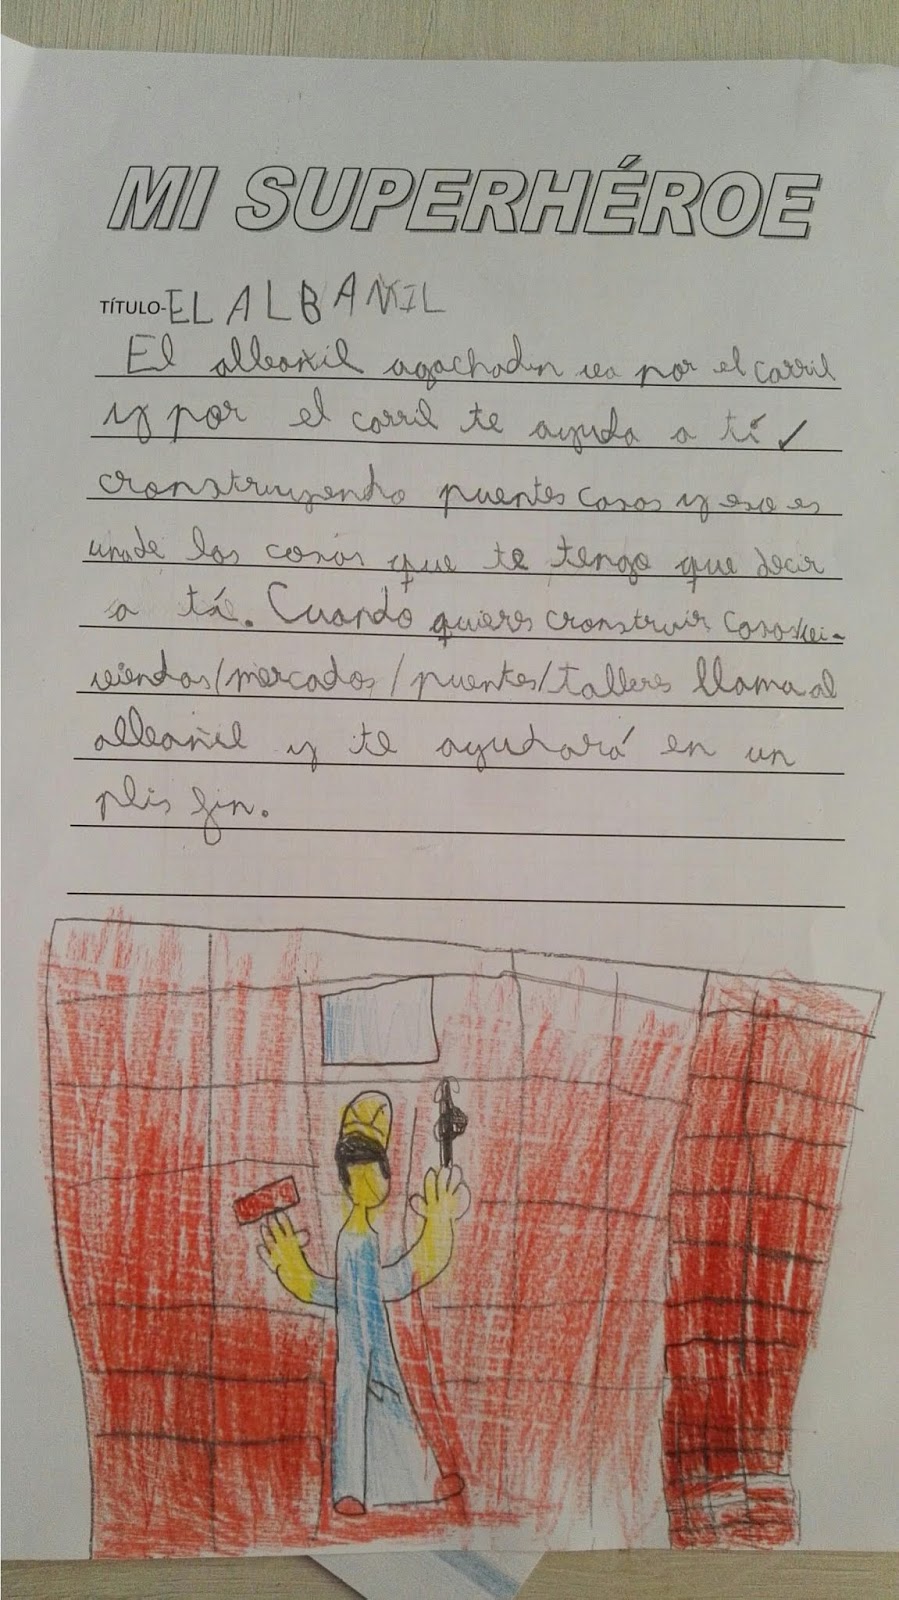 MI SUPERHÉROE
TÍTULO-EL ALBAÑIL
El albañil agachadin va por el carril
y por el carril te ayuda a tí
cronstruyendo puentes casas y eso es
una de las cosas que te tengo que decir
a tí. Cuando quieres cronstruir casas/vi-
viendas/mercados/puentes/talleres llama al
albañil y te ayudará en un
plis fin.